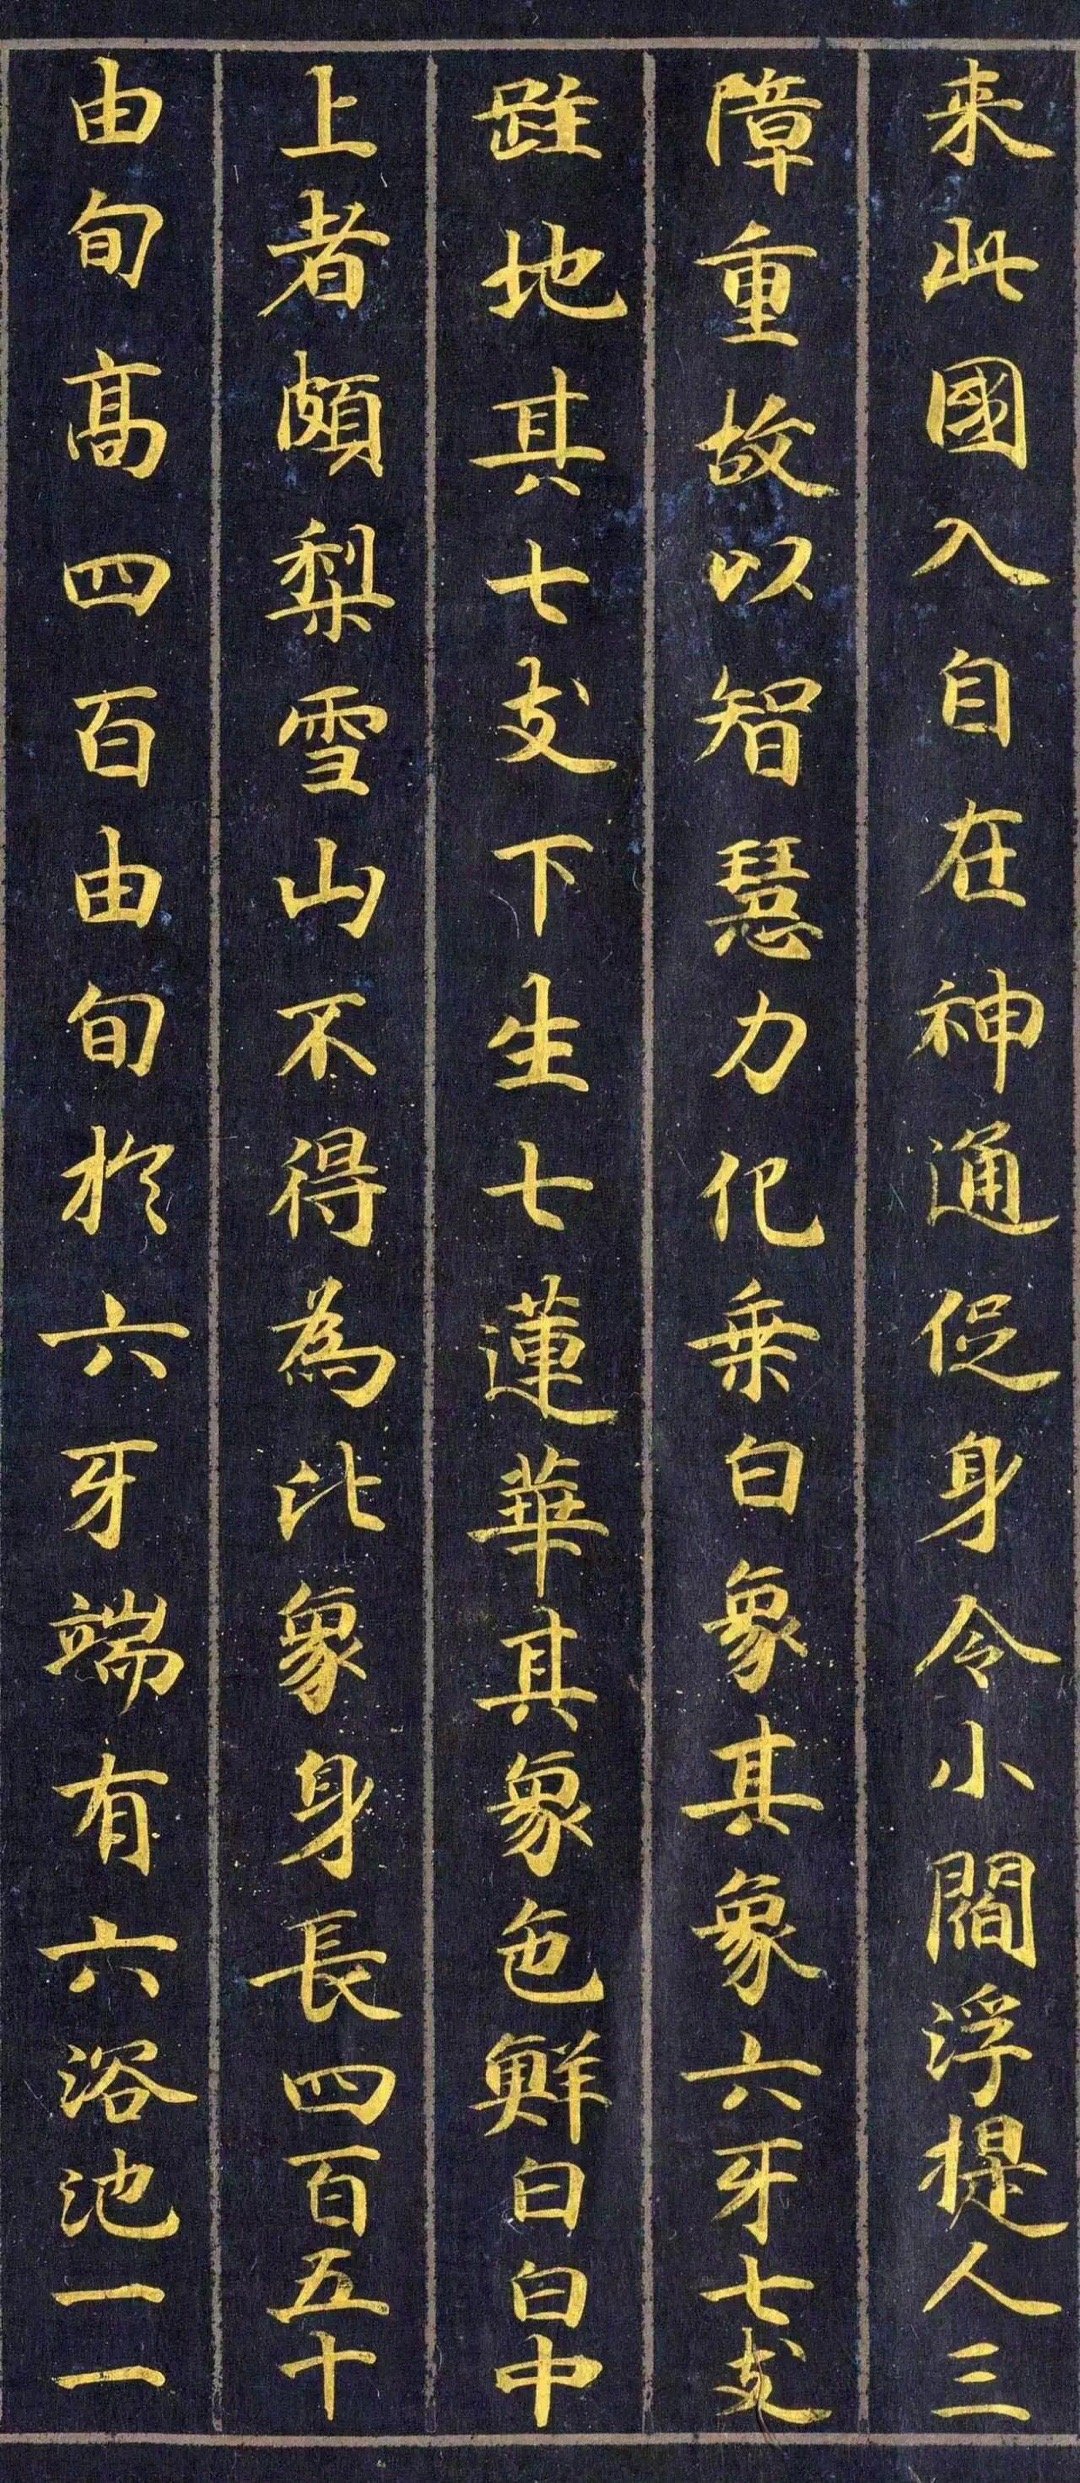 来此國入自在神通促身令小閻浮提人三
障重故以智慧力化乗白象其象六牙七支
跓地其七支下生七蓮華其象色鮮白白中
上者頗梨雪山不得為比象身長四百五十
由旬高四百由旬於六牙端有六浴池一一